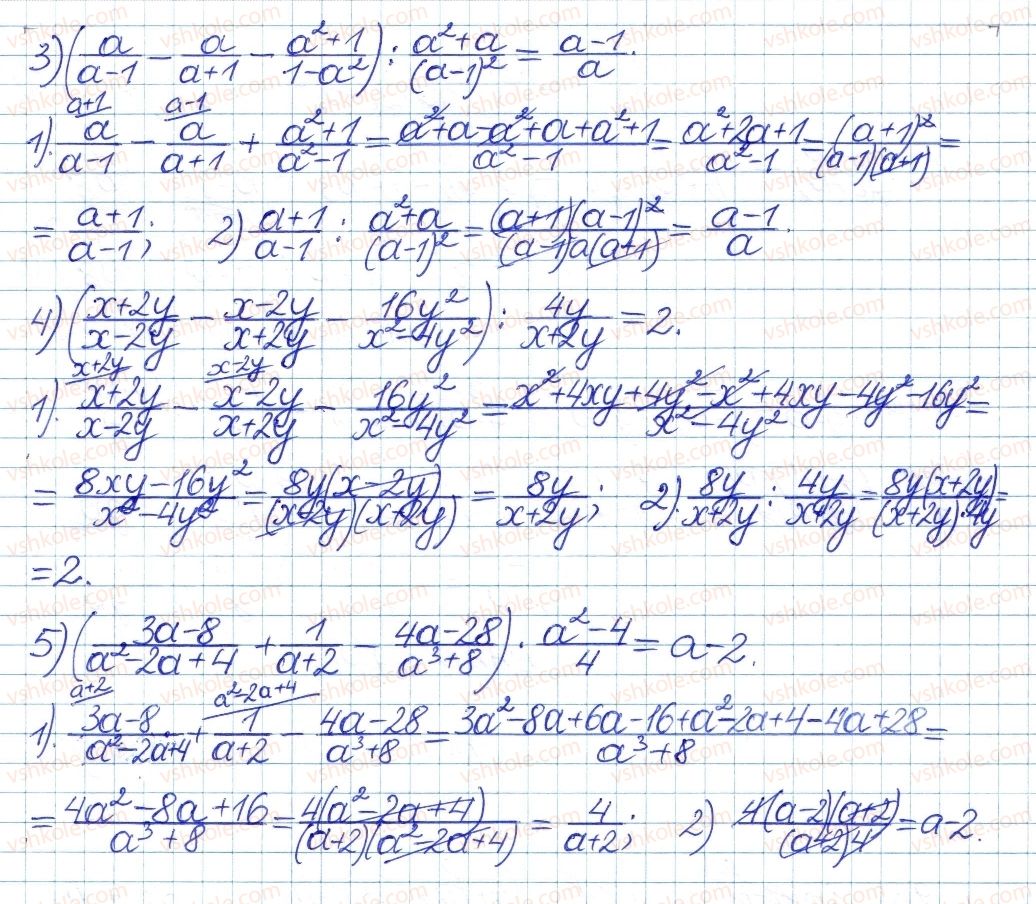 3) (a/(a-1) - a/(a+1) - (a²+1)/(1-a²)) : (a²+a)/(a-1)² = (a-1)/a.
a+1 a-1
1). a/(a-1) - a/(a+1) + (a²+1)/(a²-1) = (a²+a-a²+a+a²+1)/(a²-1) = (a²+2a+1)/(a²-1) = (a+1)²/((a-1)(a+1)) =
= (a+1)/(a-1); 2) (a+1)/(a-1) : (a²+a)/(a-1)² = (a+1)(a-1)²/((a-1)a(a+1)) = (a-1)/a.
4) ((x+2y)/(x-2y) - (x-2y)/(x+2y) - 16y²/(x²-4y²)) : 4y/(x+2y) = 2.
x+2y x-2y
1). (x+2y)/(x-2y) - (x-2y)/(x+2y) - 16y²/(x²-4y²) = (x²+4xy+4y²-x²+4xy-4y²-16y²)/(x²-4y²) =
= (8xy-16y²)/(x²-4y²) = 8y(x-2y)/((x-2y)(x+2y)) = 8y/(x+2y); 2). 8y/(x+2y) : 4y/(x+2y) = 8y(x+2y)/((x+2y)·4y) =
= 2.
5) ((3a-8)/(a²-2a+4) + 1/(a+2) - (4a-28)/(a³+8)) · (a²-4)/4 = a-2.
a+2 a²-2a+4
1). (3a-8)/(a²-2a+4) + 1/(a+2) - (4a-28)/(a³+8) = (3a²-8a+6a-16+a²-2a+4-4a+28)/(a³+8) =
= (4a²-8a+16)/(a³+8) = 4(a²-2a+4)/((a+2)(a²-2a+4)) = 4/(a+2); 2) 4(a-2)(a+2)/((a+2)4) = a-2.
vshkole.com